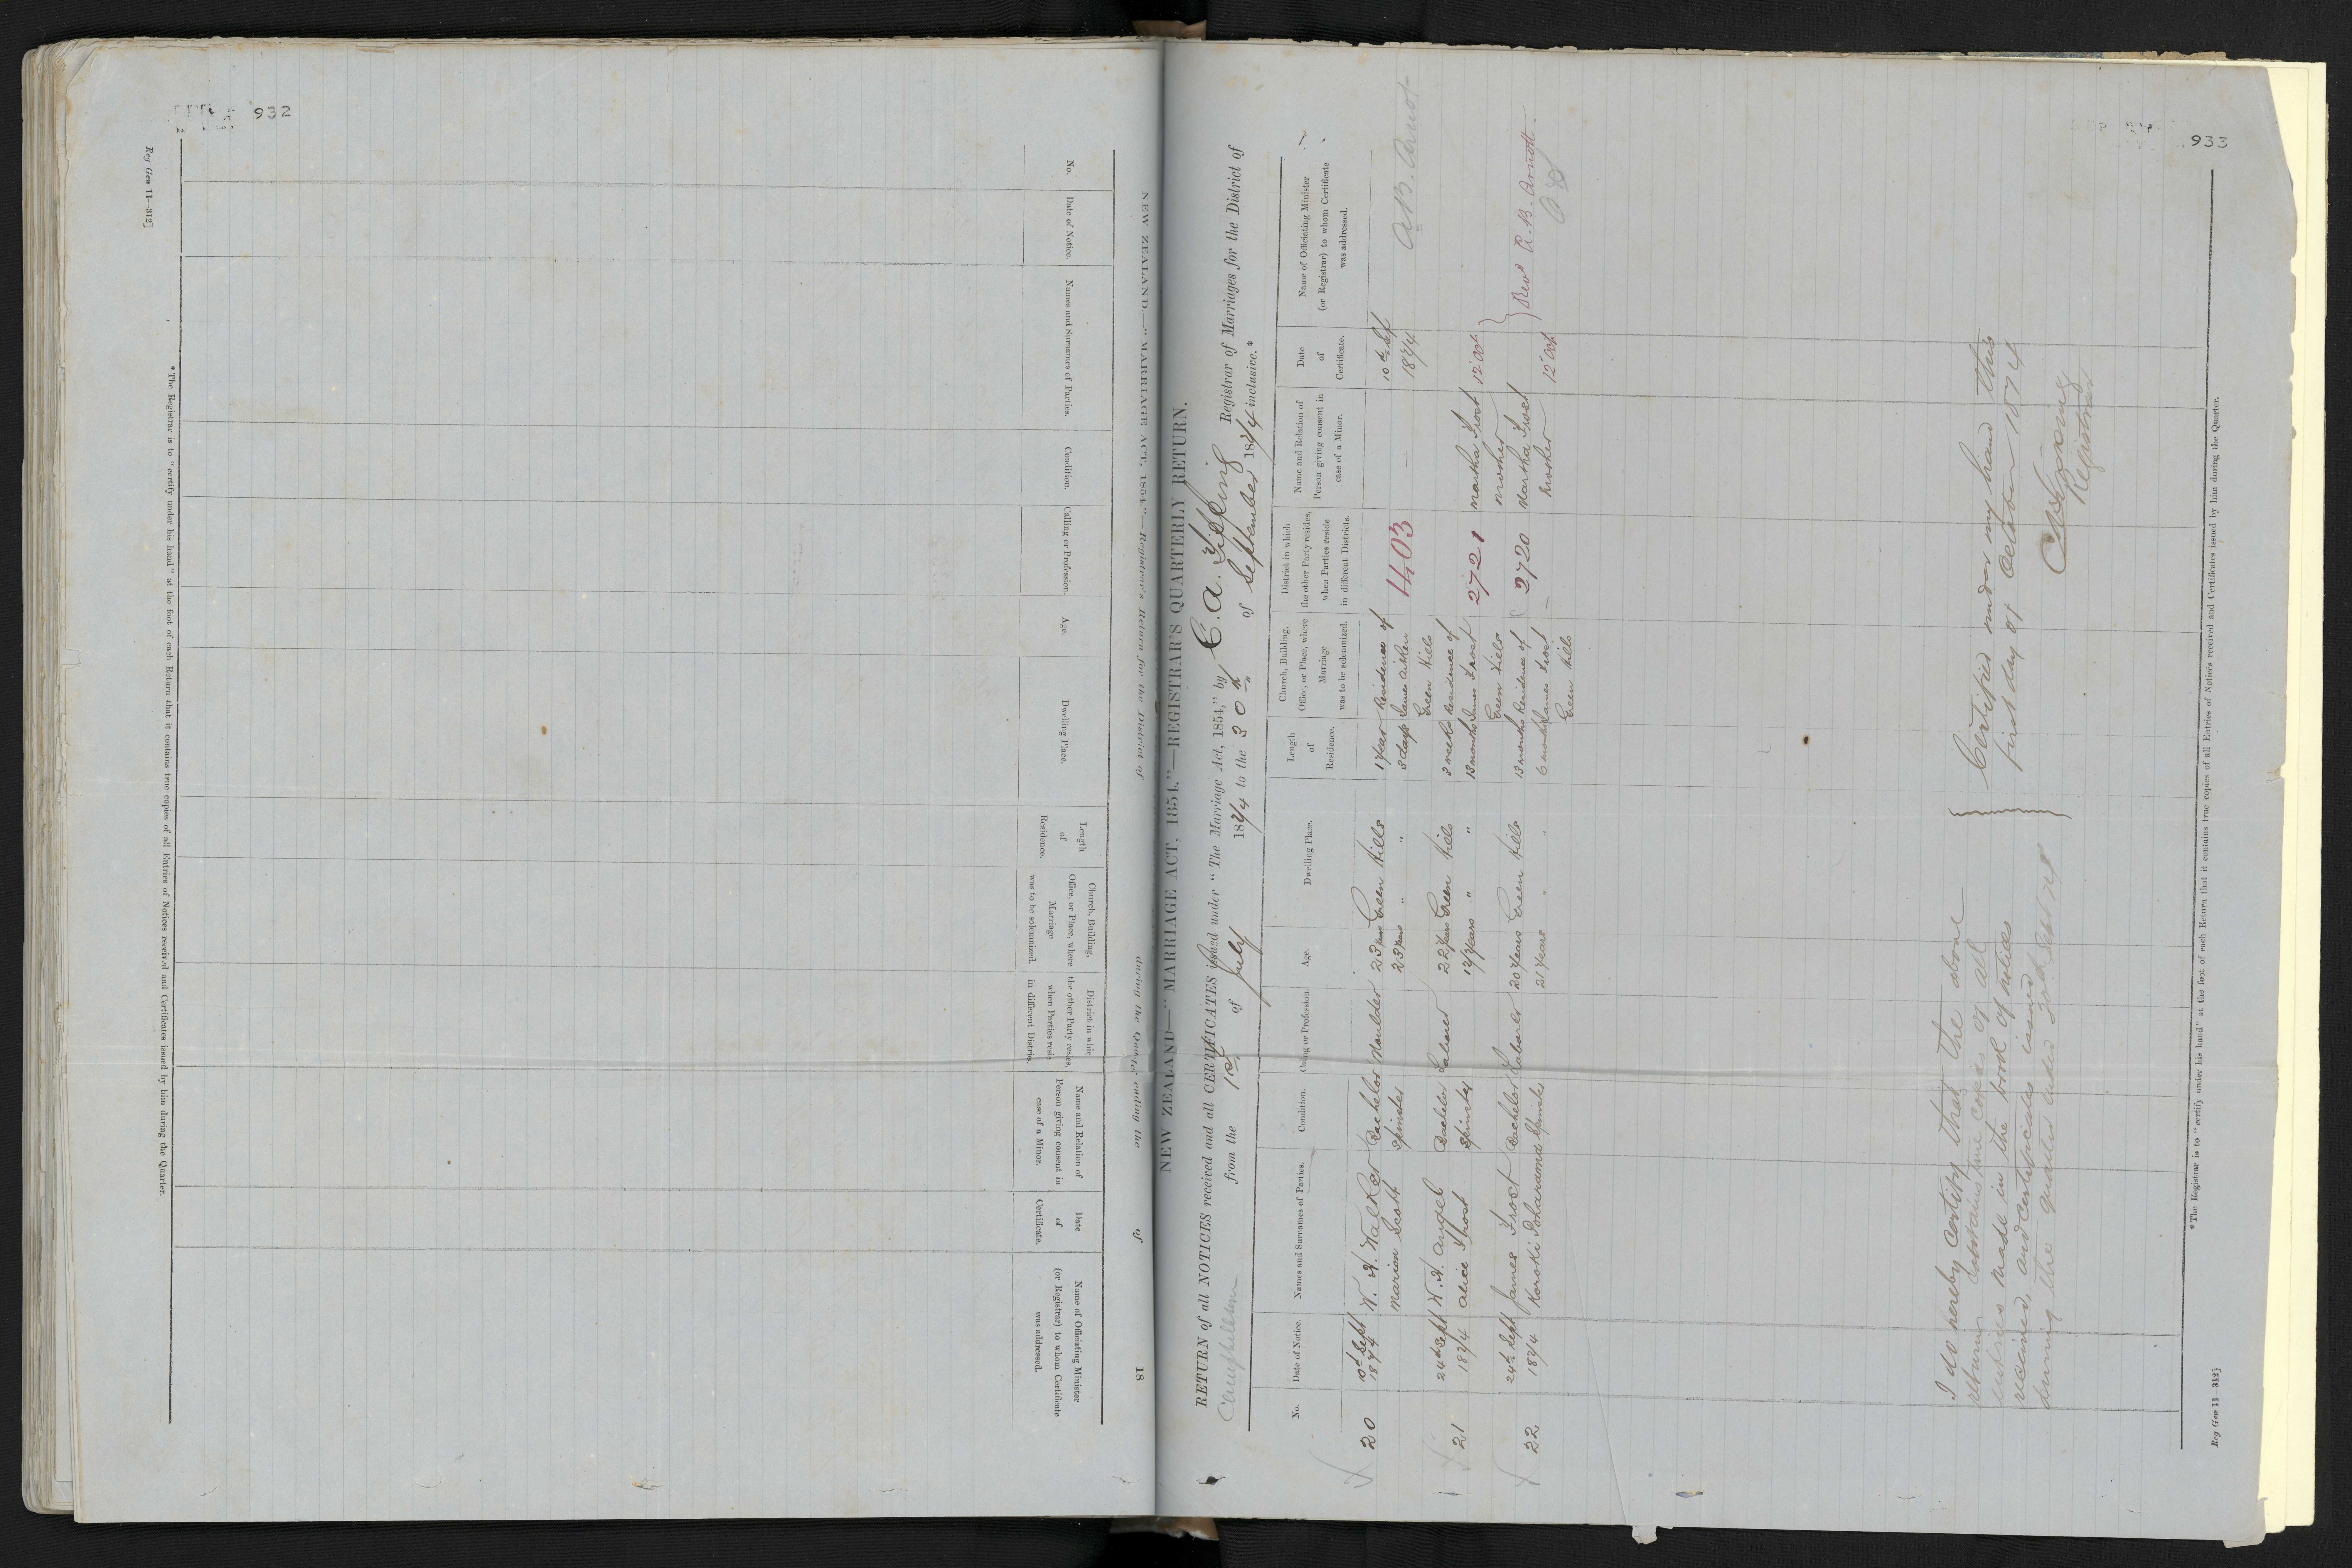 932
Reg Gen 11—312]
NEW ZEALAND.—"MARRIAGE ACT, 1854."—Registrar's Return for the District of during the Quarter ending the of 18
No.
Date of Notice.
Names and Surnames of Parties.
Condition.
Calling or Profession.
Age.
Dwelling Place.
Length
of
Residence.
Church, Building,
Office, or Place, where
Marriage
was to be solemnized.
District in which
the other Party resides,
when Parties reside
in different Districts.
Name and Relation of
Person giving consent in
case of a Minor.
Date
of
Certificate.
Name of Officiating Minister
(or Registrar) to whom Certificate
was addressed.
* The Registrar is to "certify under his hand" at the foot of each Return that it contains true copies of all Entries of Notices received and Certificates issued by him during the Quarter.
933
NEW ZEALAND—"MARRIAGE ACT, 1854."—REGISTRAR'S QUARTERLY RETURN.
RETURN of all NOTICES received and all CERTIFICATES issued under "The Marriage Act, 1854," by C. A. Tipping Registrar of Marriages for the District of
Campbelltown from the 1st of July 1874 to the 30th of September 1874 inclusive.*
No.
Date of Notice.
Names and Surnames of Parties.
Condition.
Calling or Profession.
Age.
Dwelling Place.
Length
of
Residence.
Church, Building,
Office, or Place, where
Marriage
was to be solemnized.
District in which
the other Party resides,
when Parties reside
in different Districts.
Name and Relation of
Person giving consent in
case of a Minor.
Date
of
Certificate.
Name of Officiating Minister
(or Registrar) to whom Certificate
was addressed.
20 10th Sept W. H. Walker Bachelor Moulder 23 years Green Hills 1 year Residence of — 10th Sept
1874 Marion Scott Spinster 23 years " " 3 days James Aitken 4403 1874 A. B. Arnot
Green Hills
21 24th Sept W. H. Angel Bachelor Labourer 22 years Green Hills 3 weeks Residence of 2721 Martha Frost 12 Oct
1874 Alice Frost Spinster 17 years " " 13 months James Frost Mother
Green Hills
22 24th Sept James Frost Bachelor Labourer 20 years Green Hills 13 months Residence of 2720 Martha Frost 12 Oct Revd A. B. Arnott
1874 Spinster 21 years " " 6 months James Frost — Mother
Green Hills
I do hereby certify that the above
return contains true copies of all
entries made in the book of notices
received, and certificates issued
during the quarter ended 30th Sept 1874
Certified under my hand this
first day of October 1874
C A Tipping
Registrar
* The Registrar is to "certify under his hand" at the foot of each Return that it contains true copies of all Entries of Notices received and Certificates issued by him during the Quarter.
Reg Gen 11—312]